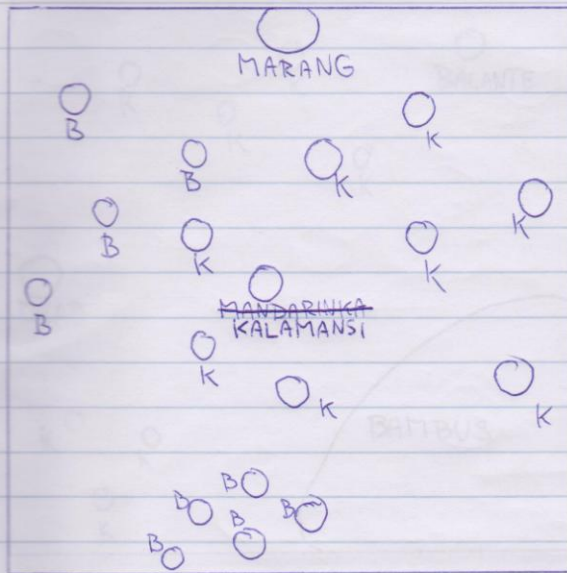 MARANG
B
K
B
K
K
B
K
K
B
MANDARINKA
KALAMANSI
K
K
K
B
B
B
B
B